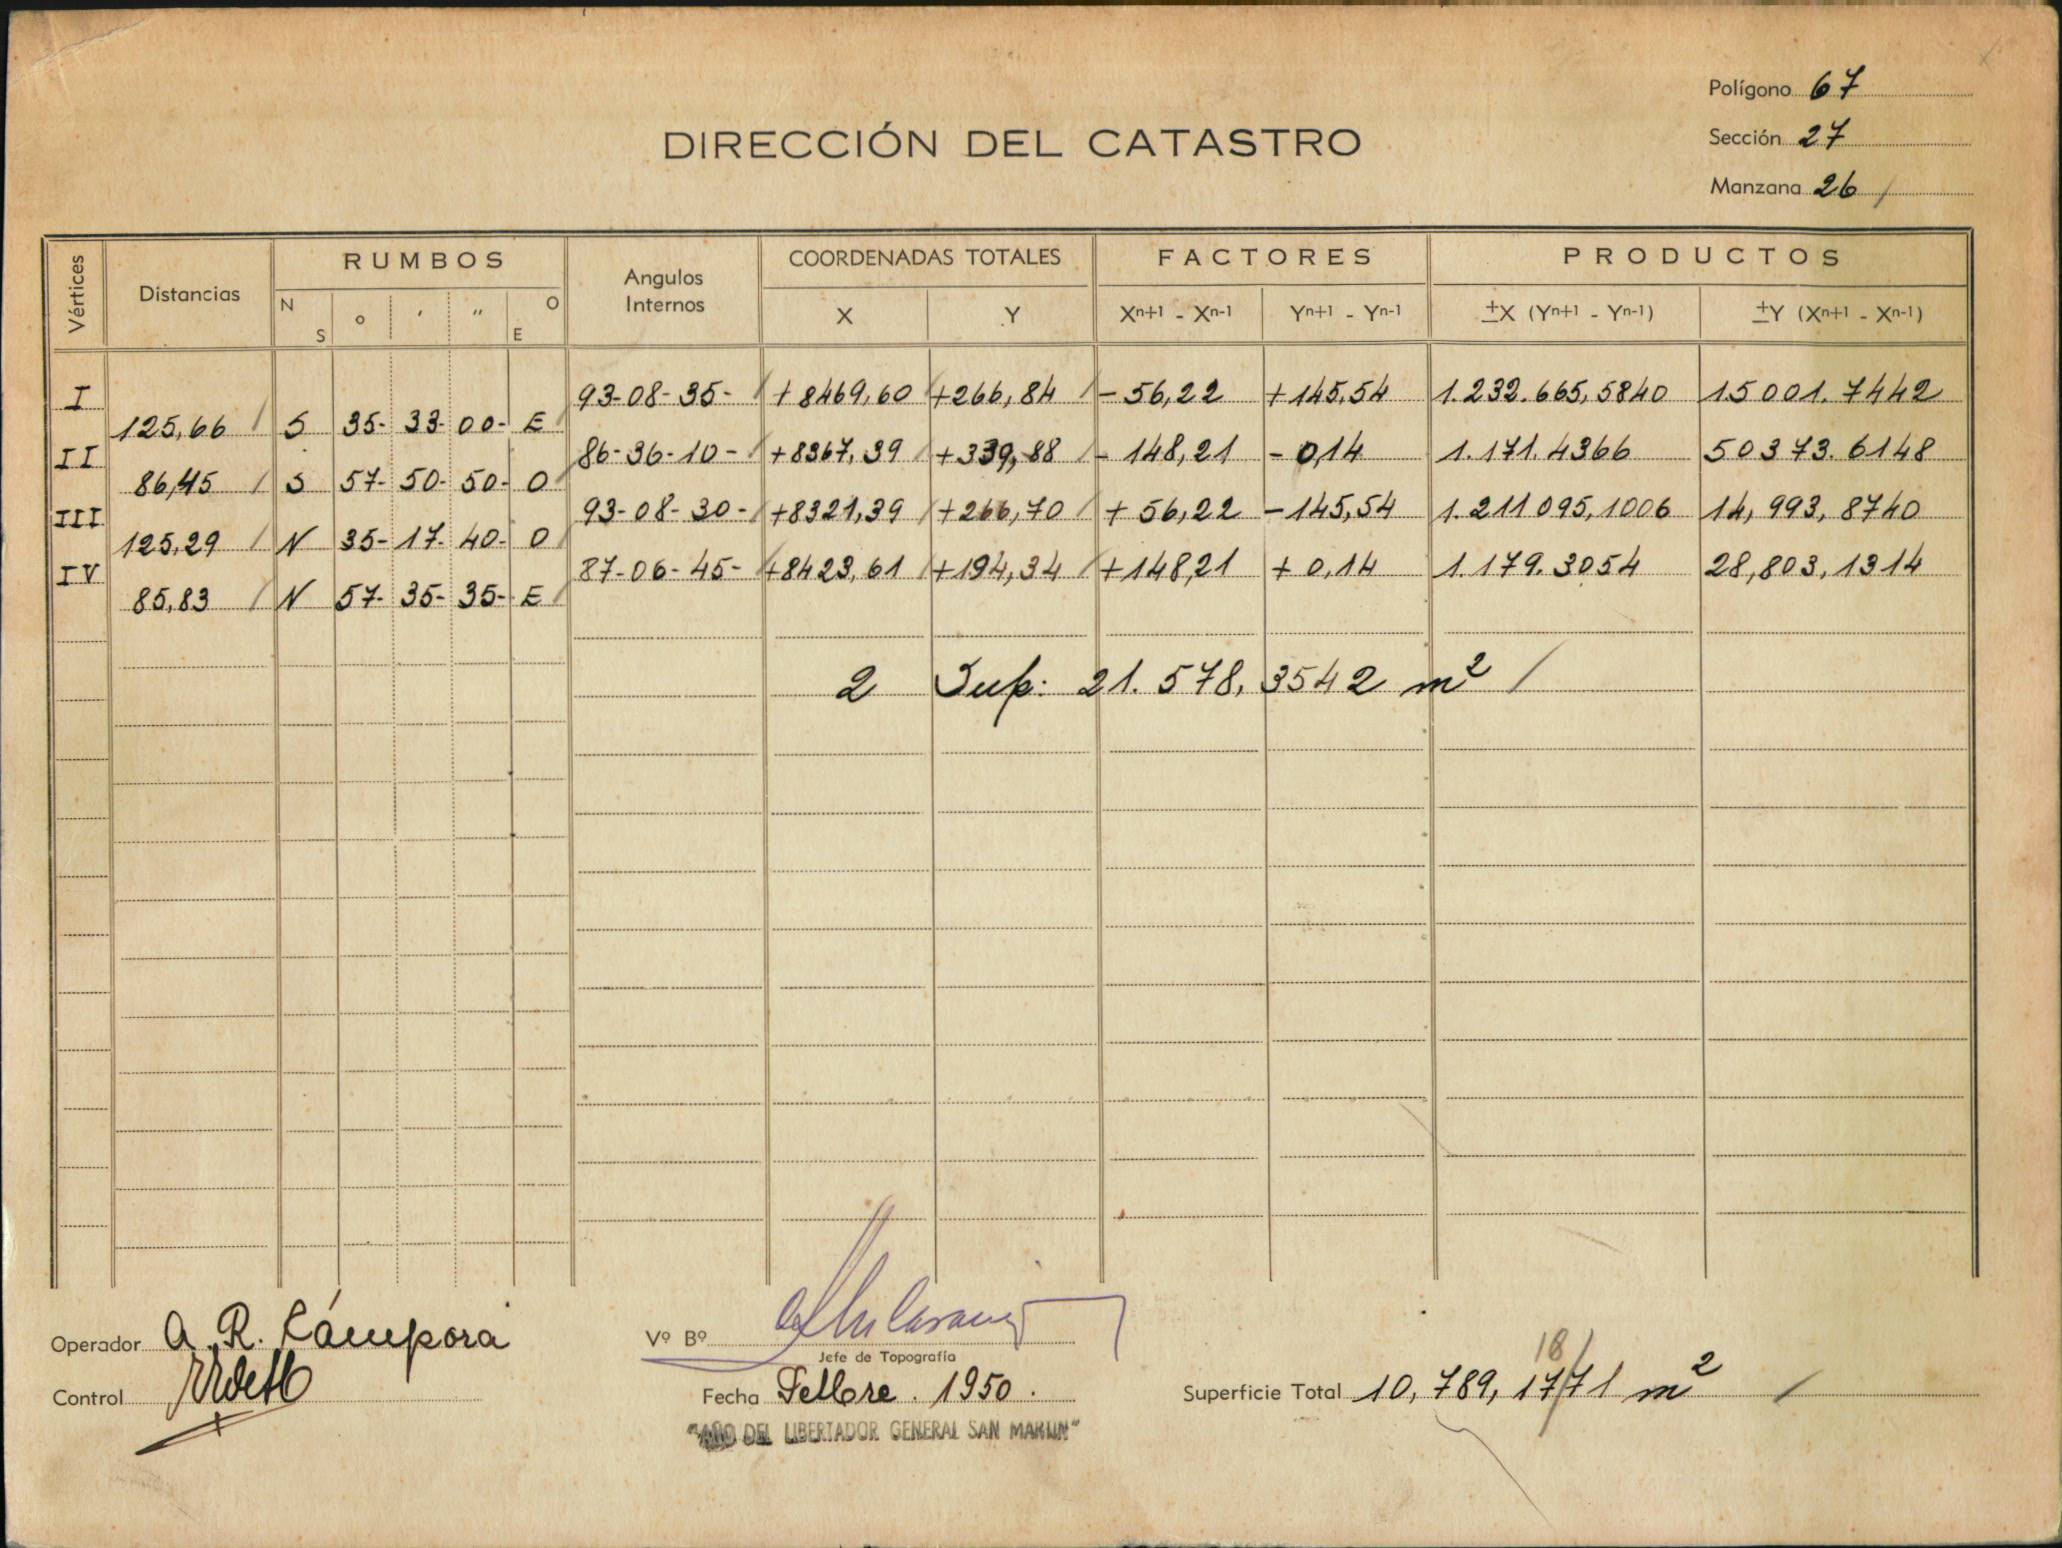 Polígono 67
DIRECCIÓN DEL CATASTRO
Sección 27
Manzana 26 /
Vértices
Distancias
RUMBOS
N S ° ′ ″ O E
Angulos Internos
COORDENADAS TOTALES
X Y
FACTORES
Xn+1 - Xn-1 Yn+1 - Yn-1
PRODUCTOS
±X (Yn+1 - Yn-1) ±Y (Xn+1 - Xn-1)
I 93-08-35- / +8469,60 / +266,84 / -56,22 +145,54 1.232.665,5840 15001.7442
125,66 / S 35- 33- 00- E /
II 86-36-10- / +8367,39 / +339,88 / -148,21 -0,14 1.171.4366 50373.6148
86,45 / S 57- 50- 50- O /
III 93-08-30- / +8321,39 / +266,70 / +56,22 -145,54 1.211095,1006 14,993,8740
125,29 / N 35- 17- 40- O /
IV 87-06-45- / +8423,61 / +194,34 / +148,21 +0,14 1.179.3054 28,803,1314
85,83 / N 57- 35- 35- E /
2 Sup: 21.578,3542 m² /
Operador A. R. Cámpora
Vº Bº
Jefe de Topografía
Control
Fecha Setbre. 1950.
18/
Superficie Total 10,789,1771 m² /
"AÑO DEL LIBERTADOR GENERAL SAN MARTIN"